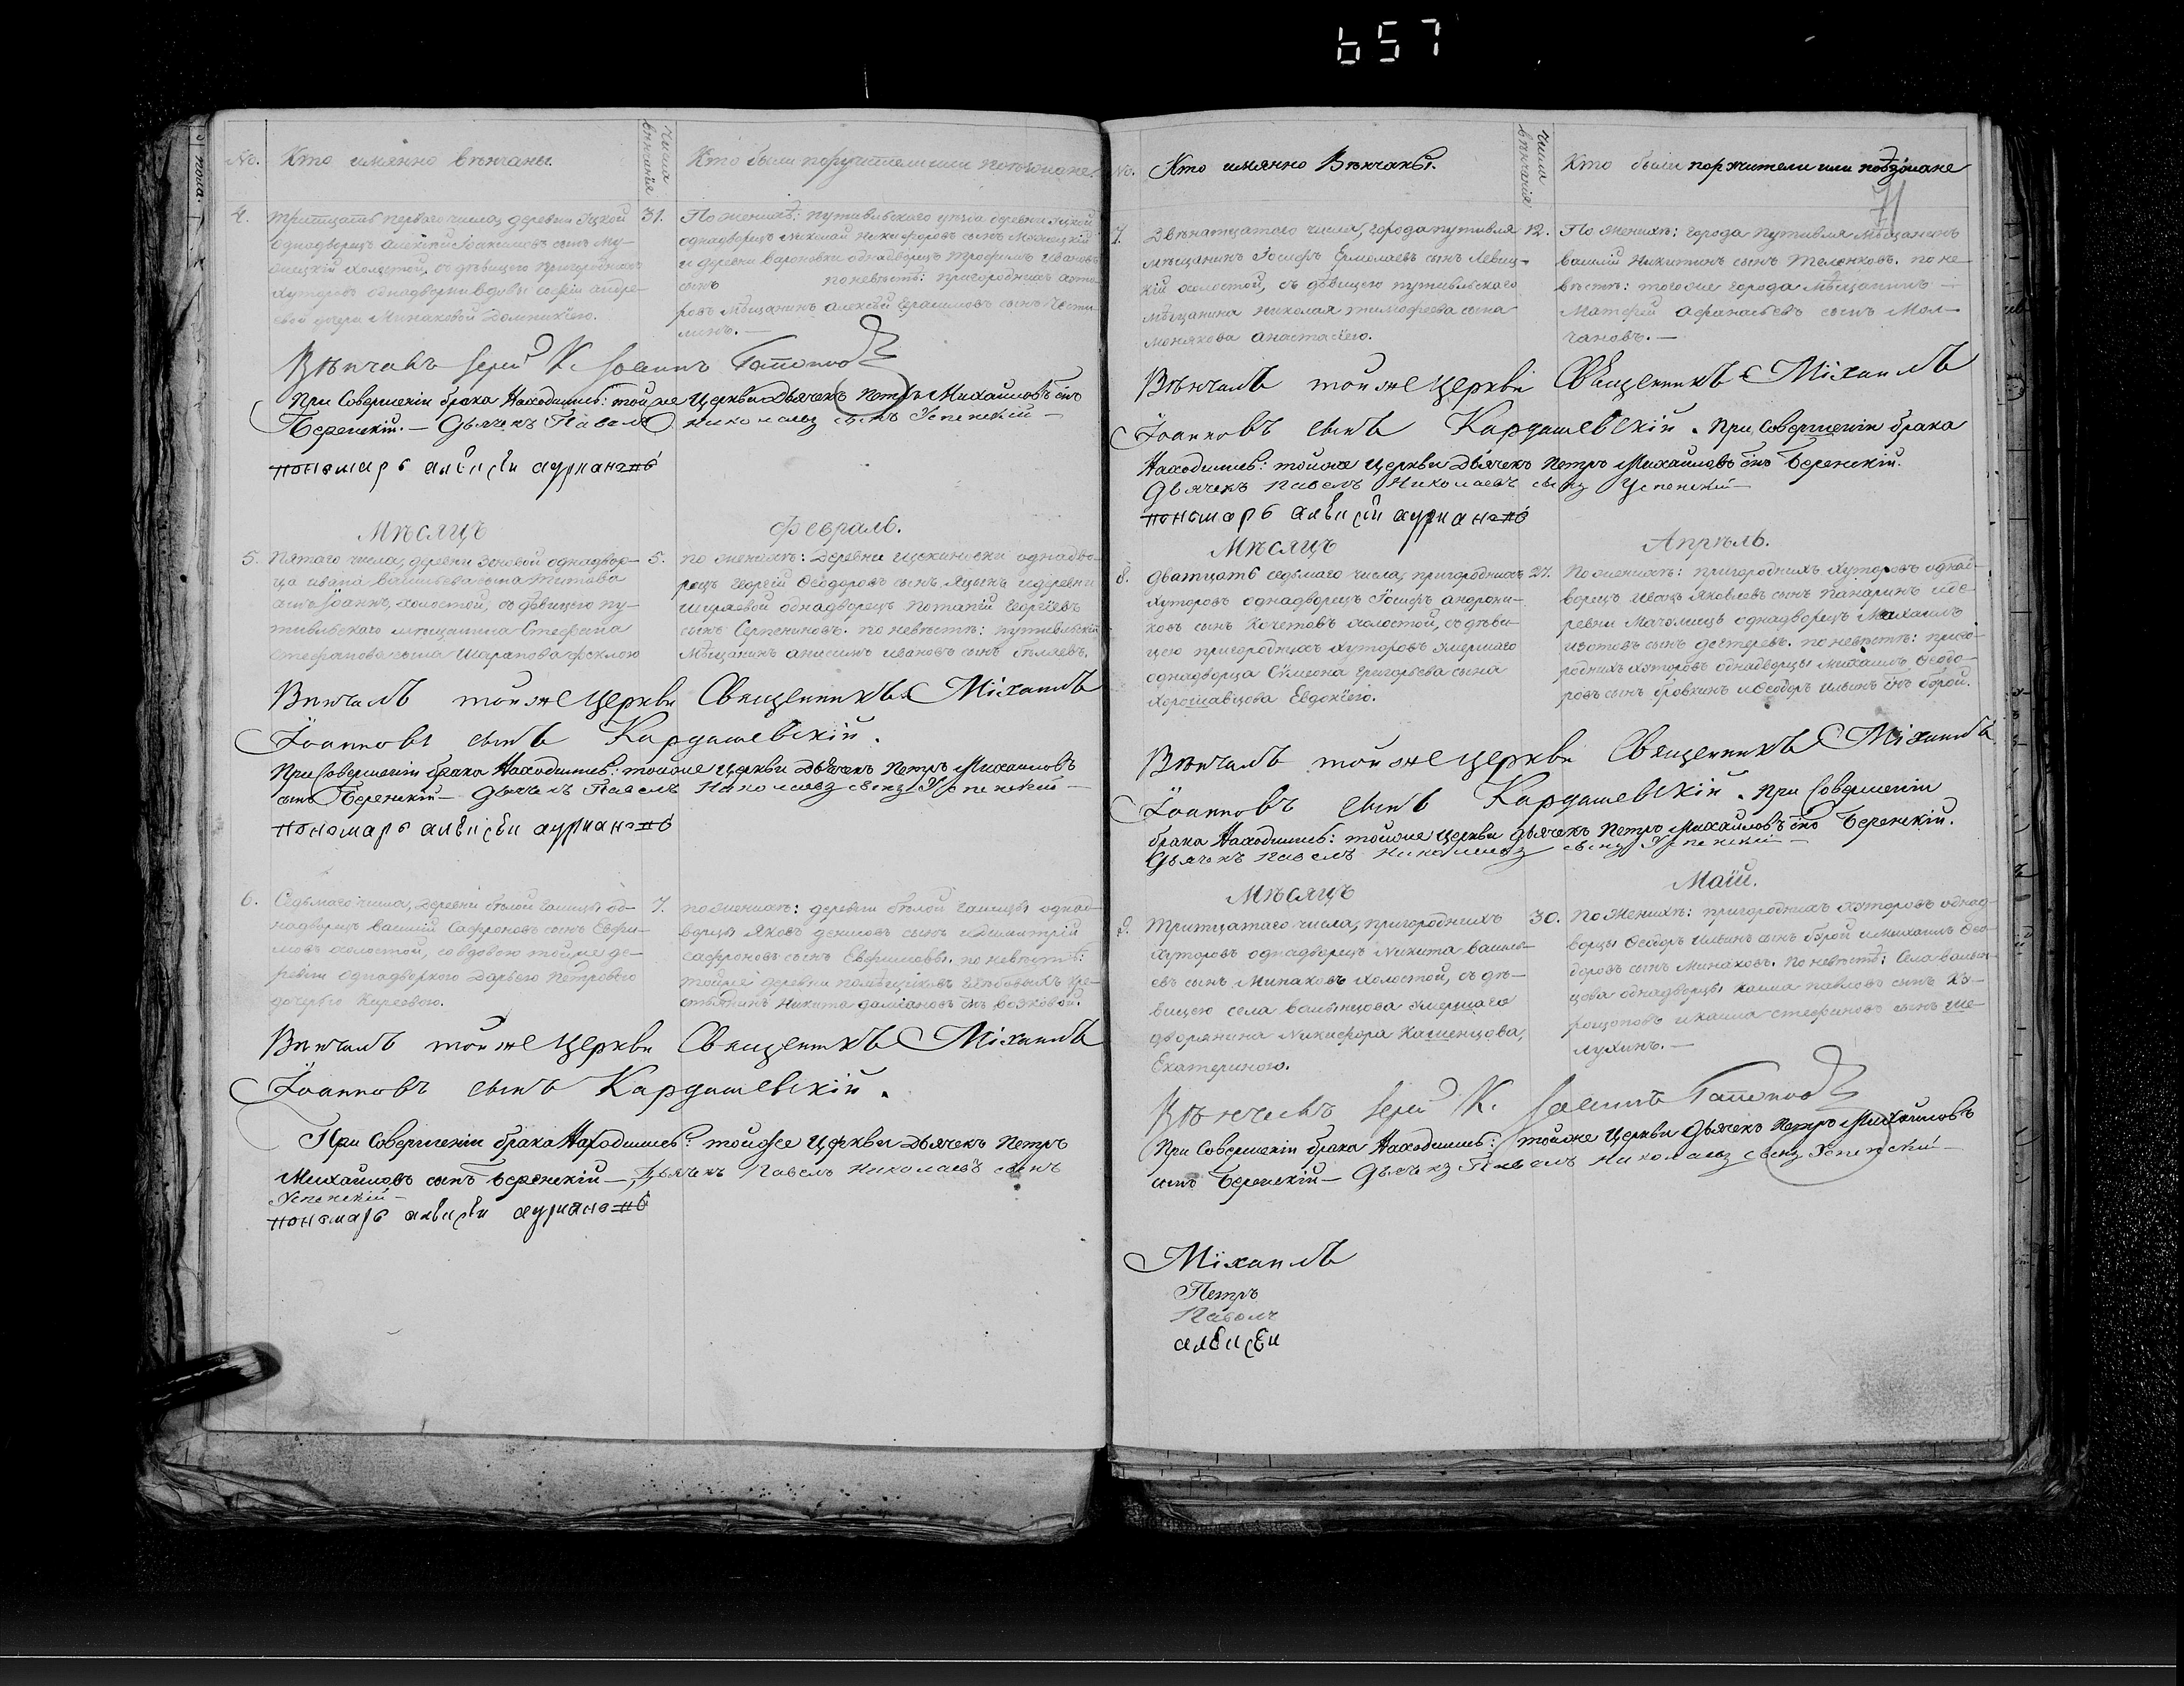 657
No. Кто имянно вѣнчаны. Числа вѣнчанія Кто были поручители или поѣзжане.
4. Тритцать перваго числа, деревни Яцкой
однадворецъ Алексѣй Іоакимовъ сынъ Му-
холостой, съ дѣвицею пригородныхъ
хуторовъ однадворки вдовы Софіи Андре-
евой дочери Минаковой Домникіею.
31. По женихѣ: путивльскаго уѣзда деревни Яцкой
однадворецъ Николай Никифоровъ сынъ
и деревни Вароновки однадворецъ Трофимъ Ивановъ
сынъ по невѣстѣ: пригородныхъ хуто-
ровъ мѣщанинъ Алексѣй Герасимовъ сынъ Чести-
линъ. —
Вѣнчалъ Іерей К. Іоаннъ
При Совершеніи брака Находились: той же Церкви Дьячекъ Петръ Михаиловъ снъ
Беренскій. — Дьячекъ Павелъ Николаевъ сынъ Успенскій —
пономарь алексѣи
Мѣсяцъ Февраль.
5. Пятаго числа, деревни Зеновой однадвор-
ца Ивана Васильева сына Титова
сынъ Іоаннъ, холостой, съ дѣвицею пу-
тивльскаго мѣщанина Стефана
Стефанова сына Шарапова Феклою
5. По женихѣ: Деревни Щекиноски однадво-
рецъ Георгій Ѳеодоровъ сынъ Яцынъ и деревни
Ширяевой однадворецъ Потапій Георгіевъ
сынъ Серпениновъ. по невѣстѣ: путивльскій
мѣщанинъ Анисимъ Ивановъ сынъ Бѣляевъ.
Вѣнчалъ той же Церкви Священникъ Міхаилъ
Іоанновъ сынъ Кардашевскій.
При Совершеніи брака Находились: той же Церкви Дьячекъ Петръ Михаиловъ
сынъ Беренскій — Дьячекъ Павелъ Николаевъ сынъ Успенскій —
пономарь алексѣи
6. Седьмаго числа, деревни Бѣлой Галицы од-
надворецъ Василій Сафроновъ сынъ Евфи-
мовъ холостой, со вдовою тойже де-
ревни однадворкою Дарьею Петровою
дочерью Киреевою.
7. по женихѣ: деревни Бѣлой Галицы однад-
ворцы Яковъ Денисовъ сынъ и Димитрій
Сафроновъ сынъ Евфимовы. по невѣстѣ:
тойже деревни помѣщиковъ Глѣбовыхъ кре-
стьянинъ Никита Даміановъ снъ Возковой.
Вѣнчалъ той же Церкви Священникъ Міхаилъ
Іоанновъ сынъ Кардашевскій.
При Совершеніи брака Находились: той же Церкви Дьячекъ Петръ
Михаиловъ сынъ Беренскій —, Дьячекъ Павелъ Николаевъ сынъ
Успенскій —
пономарь алексѣи
No. Кто имянно Вѣнчаны. Числа вѣнчанія Кто были поручители или поѣзжане
71
7. Двѣнатцатаго числа, города путивля
мѣщанинъ Іосифъ Ермолаевъ сынъ Левиц-
кій холостой, съ дѣвицею путивльскаго
мѣщанина Николая Тимофеева сына
Монякова Анастасіею.
12. По женихѣ: города Путивля мѣщанинъ
Василій Никитинъ сынъ Теленковъ. по не-
вѣстѣ: того же города мѣщанинъ —
Матфей Афанасьевъ сынъ Мол-
чановъ. —
Вѣнчалъ той же Церкви Священникъ Міхаилъ
Іоанновъ сынъ Кардашевскій. При Совершеніи брака
Находились: той же Церкви Дьячекъ Петръ Михаиловъ снъ Беренскій.
Дьячекъ Павелъ Николаевъ сынъ Успенскій —
пономарь алексѣи
Мѣсяцъ Апрѣль.
8. Дватцать седьмаго числа, пригородныхъ
хуторовъ однадворецъ Іосифъ Андрони-
ковъ сынъ Кочетовъ холостой, съ дѣви-
цею пригородныхъ хуторовъ умершаго
однадворца Симеона Григорьева сына
Хорошавцова Евдокіею.
27. По женихѣ: пригородныхъ хуторовъ однад-
ворецъ Яковлевъ сынъ Панаринъ и де-
ревни однадворецъ Михаилъ
Изотовъ сынъ Дегтеревъ. по невѣстѣ: приго-
родныхъ хуторовъ однадворцы Михаилъ Ѳеодо-
ровъ сынъ и Ѳеодоръ Ильинъ снъ
Вѣнчалъ той же Церкви Священникъ Міхаилъ
Іоанновъ сынъ Кардашевскій. При Совершеніи
брака Находились: той же Церкви Дьячекъ Петръ Михаиловъ снъ Беренскій.
Дьячекъ Павелъ Николаевъ сынъ Успенскій —
Мѣсяцъ Маій.
9. Тритцатаго числа, пригородныхъ
хуторовъ однадворецъ Никита Василь-
евъ сынъ Минаковъ холостой, съ дѣ-
вицею села Волынцова умершаго
дворянина Никифора Каменцова,
Екатериною.
30. По Женихѣ: пригородныхъ хуторовъ однад-
ворцы Ѳеодоръ Ильинъ сынъ и Михаилъ Ѳео-
доровъ сынъ Минаковъ. По невѣстѣ: Села Волын-
цова однадворцы Павловъ сынъ
и Стефановъ сынъ Ше-
лухинъ. —
Вѣнчалъ Іерей К. Іоаннъ
При Совершеніи брака Находились: той же Церкви Дьячекъ Петръ Михаиловъ
сынъ Беренскій — Дьячекъ Павелъ Николаевъ сынъ Успенскій —
Міхаилъ
Петръ
Павелъ
алексѣи